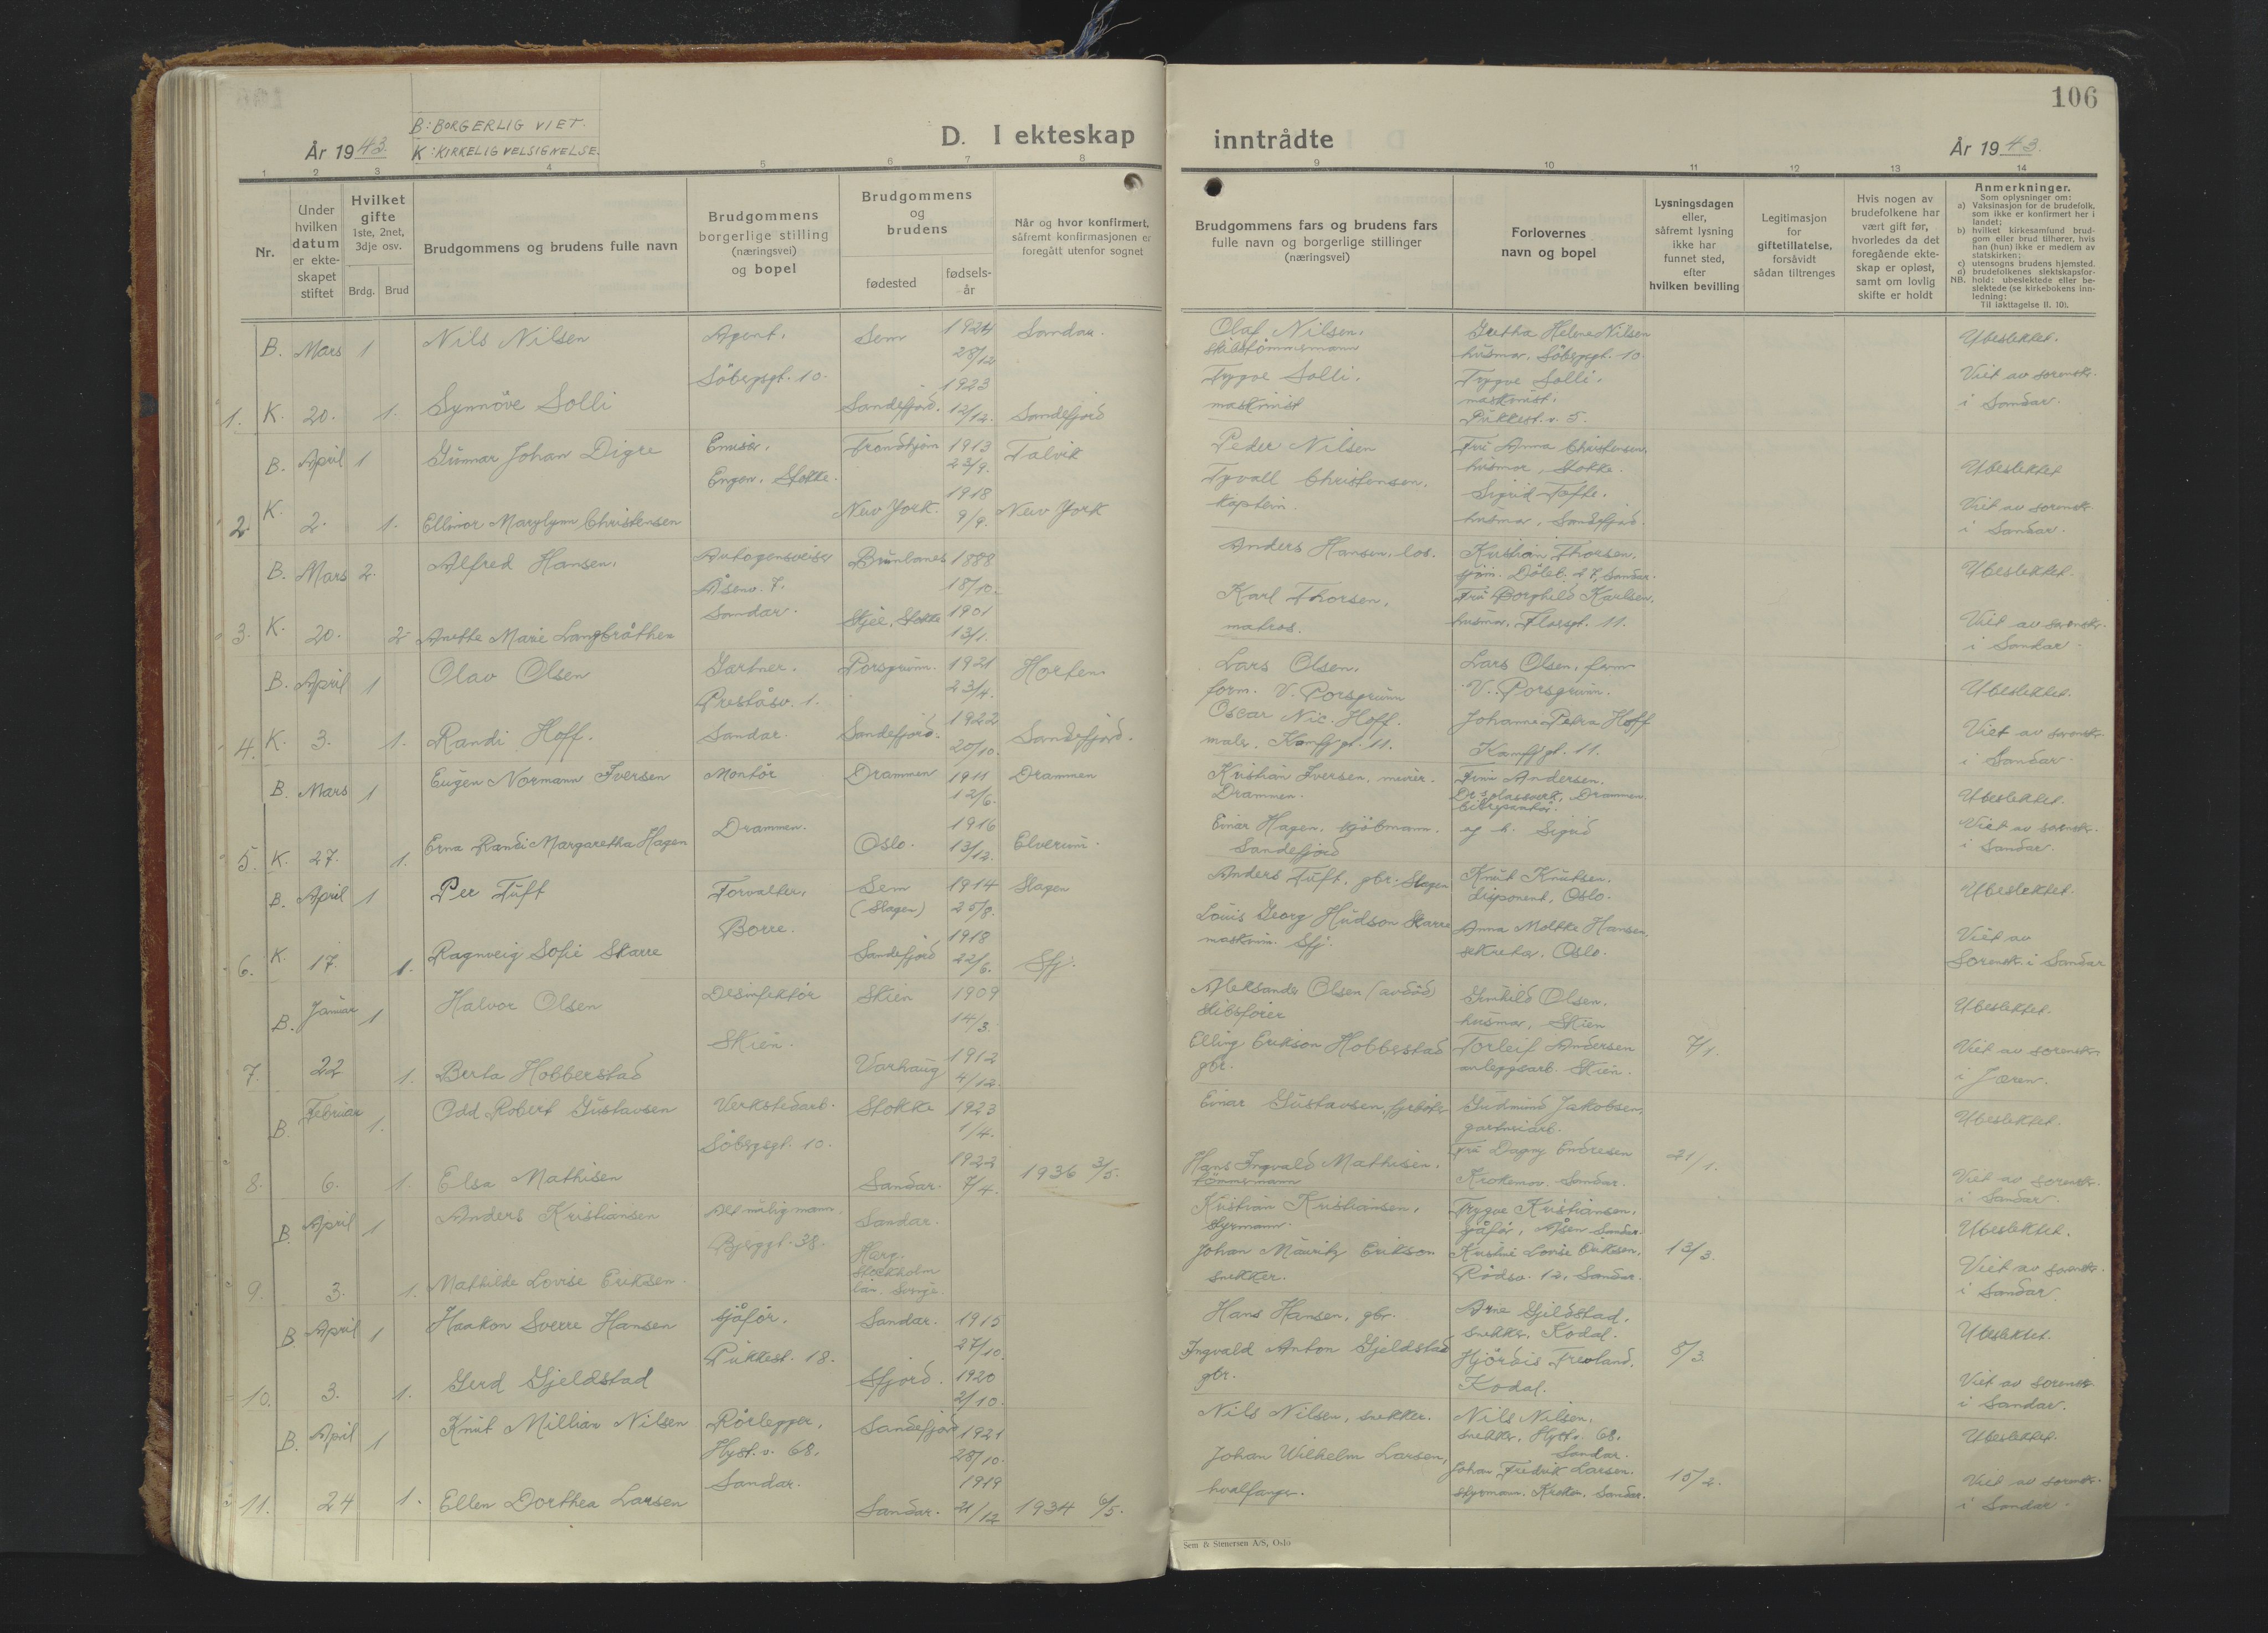 106
B: BORGERLIG VIET.
K: KIRKELIG VELSIGNELSE.
År 1943.
D. I ekteskap inntrådte
År 1943.
1 2 3 4 5 6 7 8 9 10 11 12 13 14
Nr.
Under hvilken datum er ekte-skapet stiftet
Hvilket gifte 1ste, 2net, 3dje osv.
Brdg. Brud
Brudgommens og brudens fulle navn
Brudgommens borgerlige stilling (næringsvei) og bopel
Brudgommens og brudens
fødested
fødsels-år
Når og hvor konfirmert, såfremt konfirmasjonen er foregått utenfor sognet
Brudgommens fars og brudens fars fulle navn og borgerlige stillinger (næringsvei)
Forlovernes navn og bopel
Lysningsdagen eller, såfremt lysning ikke har funnet sted, efter hvilken bevilling
Legitimasjon for giftetillatelse, forsåvidt sådan tiltrenges
Hvis nogen av brudefolkene har vært gift før, hvorledes da det foregående ekte-skap er opløst, samt om lovlig skifte er holdt
Anmerkninger.
Som oplysninger om:
a) Vaksinasjon for de brudefolk, som ikke er konfirmert her i landet:
b) hvilket kirkesamfund brud-gom eller brud tilhører, hvis han (hun) ikke er medlem av statskirken:
c) utensogns brudens hjemsted.
d) brudefolkenes slektskapsfor-hold: ubeslektede eller be-slektede (se kirkebokens inn-ledning:
NB.
Til iakttagelse II. 10).
B. Mars 1 Nils Nilsen Agent. Sem 1924 28/12 Sandar. Olaf Nilsen. skibstømmermann Gretha Helene Nilsen husmor, Söbergsgt. 10 Ubeslektet.
Söbergsgt. 10.
1. K. 20. 1. Synnöve Solli Sandefjord. 1923 12/12. Sandefjord Trygve Solli. maskinist Trygve Solli. maskinist. Pukkest. v. 5. Viet av sorensk. i Sandar.
B. April 1 Gunnar Johan Digre Trondhjem 1913 23/9. Talvik Peder Nilsen Fru Anna Christensen. husmor, Stokke. Ubeslektet
Stokke.
2. K. 2. 1. Ellinor Marylynn Christensen New York. 1918 9/9. New York Tyvall Christensen. kaptein. Sigrid Tofte. husmor, Sandefjord. Viet av sorensk. i Sandar.
B. Mars 2. Alfred Hansen. Autogensveiser Brunlanes 1888 18/10. Anders Hansen, los. Kristian Thorsen. Döleb. 27, Sandar. Ubeslektet.
Åsenv. 7. Sandar.
3. K. 20. 2 Anette Marie Langbråthen Skjee, Stokke 1901 13/1. Karl Thorsen, matros. Fru Borghild Karlsen, husmor, Florsgt. 11. Viet av sorensk. i Sandar
B. April 1 Olav Olsen Gartner. Porsgrunn. 1921 23/4. Horten Lars Olsen. form. V. Porsgrunn Lars Olsen, form V. Porsgrunn. Ubeslektet.
Preståsv. 1. Sandar.
4. K. 3. 1. Randi Hoff. Sandefjord. 1922 20/10. Sandefjord. Oscar Nic. Hoff. maler. Kamfjgt. 11. Johanne Petra Hoff Kamfjgt. 11. Viet av sorensk. i Sandar.
B. Mars 1 Eugen Normann Iversen Montör Drammen 1911 12/6. Drammen Kristian Iversen, murer. Drammen. Finn Andersen. Dr.s glassverk, Drammen. Ubeslektet.
Drammen.
5. K. 27. 1. Erna Randi Margaretha Hagen Oslo. 1916 13/12. Elverum. Einar Hagen, kjöbmann. Sandefjord og h. Sigrid Viet av sorensk. i Sandar.
B. April 1 Per Tuft Forvalter, Sem (Slagen) 1914 25/8. Slagen Anders Tuft. gbr. Slagen Knut Knutsen. disponent, Oslo. Ubeslektet.
Borre.
6. K. 17. 1. Ragnveig Sofie Skarre Sandefjord 1918 22/6. Sfj. Louis Georg Hudson Skarre maskinm. Sfj. Anna Moltke Hansen, sekretær. Oslo. Viet av Sorensk. i Sandar
B. Januar 1. Halvor Olsen Desinfektör Skien 1909 14/3. Aleksander Olsen (avdöd) skibsförer Gunhild Olsen. husmor, Skien Ubeslektet.
Skien.
7. 22 1. Berta Hobberstad Varhaug 1912 4/12. Elling Erikson Hobberstad gbr. Torleif Andersen anleggsarb. Skien. 7/1. Viet av sorensk. i Jæren.
B. Februar 1. Odd Robert Gustavsen Verkstedarb. Stokke 1923 1/4. Einar Gustavsen, fyrböter Gudmund Jakobsen, gartneriarb. Ubeslektet.
Söbergsgt. 10.
8. 6. 1. Elsa Mathisen Sandar. 1922 7/4. 1936 3/5. Hans Ingvald Mathisen. tömmermann Fru Dagny Endresen Krokemov. Sandar. 21/1. Viet av sorensk. i Sandar
B. April 1 Anders Kristiansen Altmuligmann. Sandar. Kristian Kristiansen, styrmann. Trygve Kristiansen, sjåför, Åsen Sandar. Ubeslektet.
Bjerggt. 38.
9. 3. 1. Mathilde Lovise Eriksen. Harg. Stockholm län. Sverige. Johan Mauritz Erikson snekker. Kristine Lovise Eriksen, Rödsv. 12, Sandar. 13/3. Viet av sorensk. i Sandar.
B April 1 Haakon Sverre Hansen Sjåför. Sandar. 1915 27/10. Hans Hansen, gbr. Arne Gjeldstad, snekker, Kodal. Ubeslektet.
Pukkest. 18.
10. 3. 1. Gerd Gjeldstad Sfjord. 1920 2/10. Ingvald Anton Gjeldstad gbr. Hjördis Trevland. Kodal. 8/3. Viet av sorensk. i Sandar.
B. April 1 Knut Millian Nilsen Rörlegger, Sandefjord 1921 28/10. Nils Nilsen, snekker. Nils Nilsen. snekker, Hyst.v. 68. Sandar. Ubeslektet.
Hyst. v. 68. Sandar.
11. 24 1. Ellen Dorthea Larsen Sandar. 1919 21/12 1934 6/5. Johan Wilhelm Larsen, hvalfanger. Johan Fredrik Larsen. styrmann. Sandar. 15/2. Viet av sorensk. i Sandar.
Sem & Stenersen A/S, Oslo